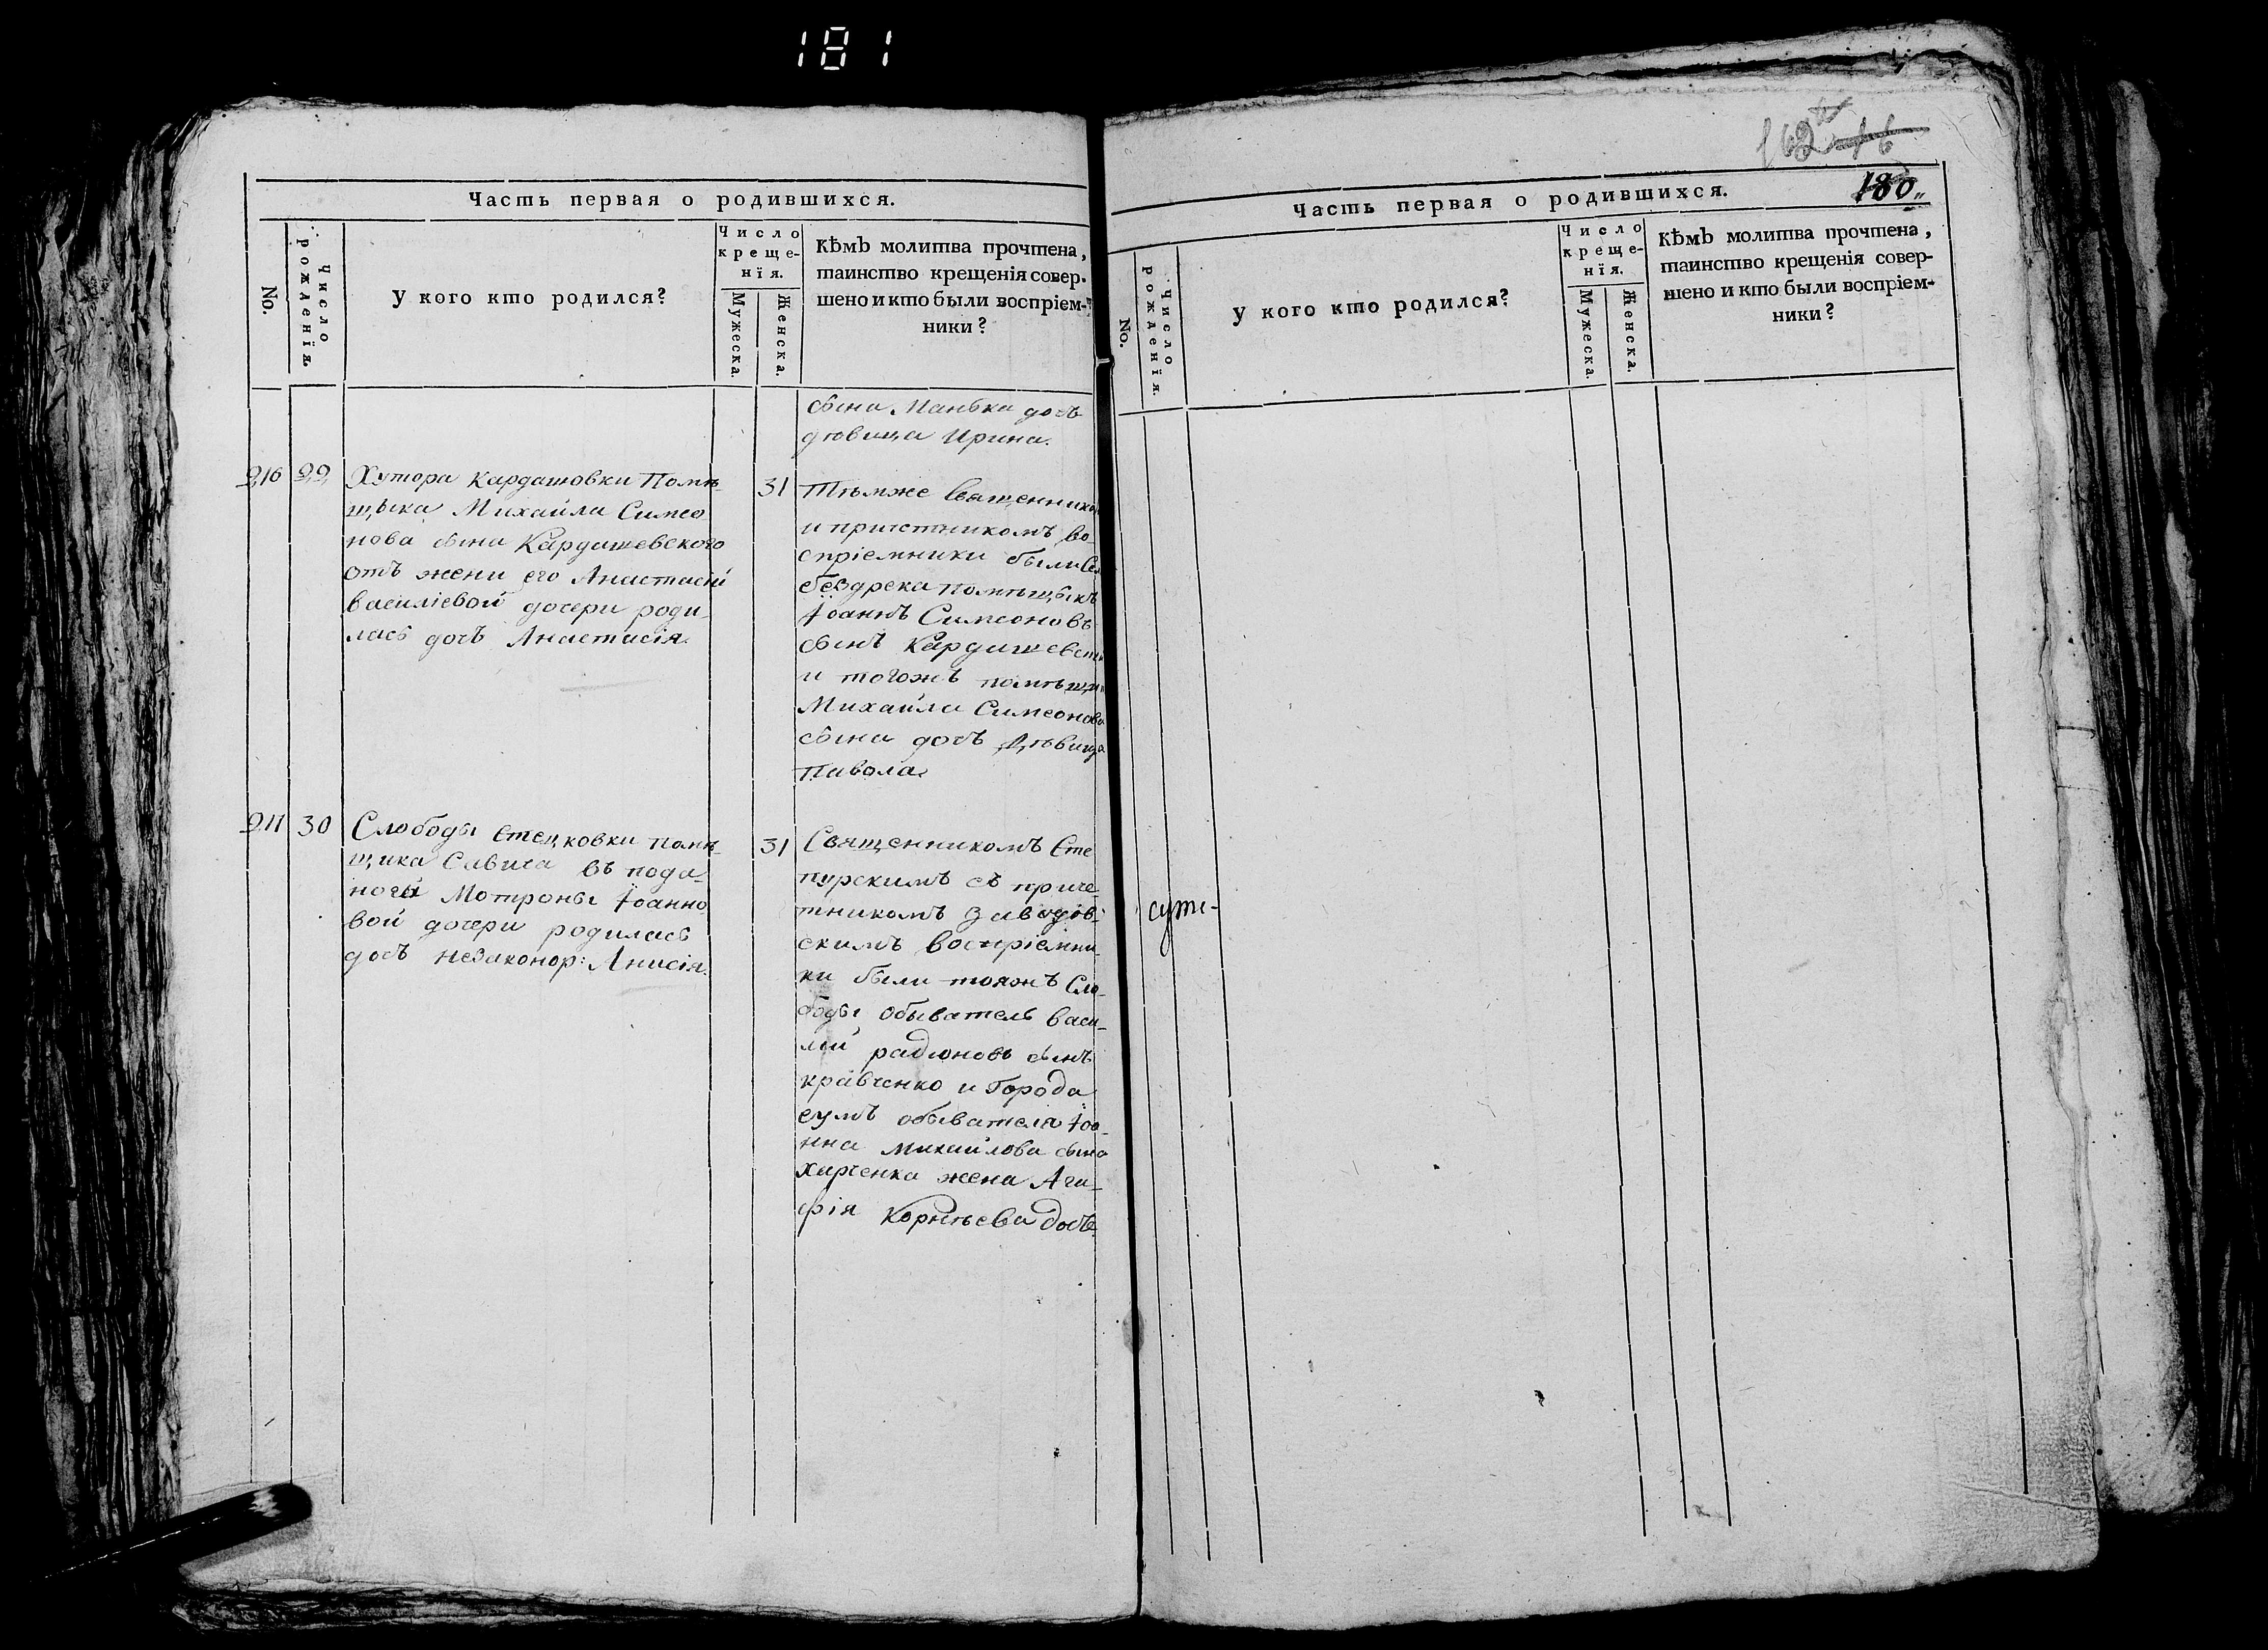 181
Часть первая о родившихся.
No.
Число рожденїя.
У кого кто родился?
Число крещенїя.
Мужеска.
Женска.
Кѣмъ молитва прочтена,
таинство крещенїя совер-
шено и кто были воспрїем-
ники?
сына Манька дочъ
дѣвица Ирина.
216 29 Хутора Кардашовки Помѣ-
щика Михайла Симео
нова сына Кардашевского
отъ жени его Анастасіи
василіевой дочери роди-
лась дочъ Анастасія.
31 Тѣмже Священнико
и причетникомъ во-
спріемники были
бездрека помѣщыкъ
Іоаннъ Симеоновъ
сынъ Кардашевск
и тогожъ помѣщи
Михайла Симеонова
сына дочъ Дѣвица
Павола.
217 30 Слободы Стецковки помѣ-
щика Савича въ пода-
ной Мотроны Іоанно
вой дочери родилась
дочъ незаконор: Анисія.
31 Священникомъ Сте
пурскимъ съ приче
тникомъ Заводов-
скимъ воспріемни-
ки были тояжъ Сло-
боды обыватель Васи-
лій радионовъ сынъ
кравченко и Города
сумъ обывателя Іоа-
нна михайлова сына
Харченка жена Ага-
фія Корнѣева дочъ
162 16
180
Часть первая о родившихся.
No.
Число рожденїя.
У кого кто родился?
Число крещенїя.
Мужеска.
Женска.
Кѣмъ молитва прочтена,
таинство крещенїя совер-
шено и кто были воспрїем-
ники?